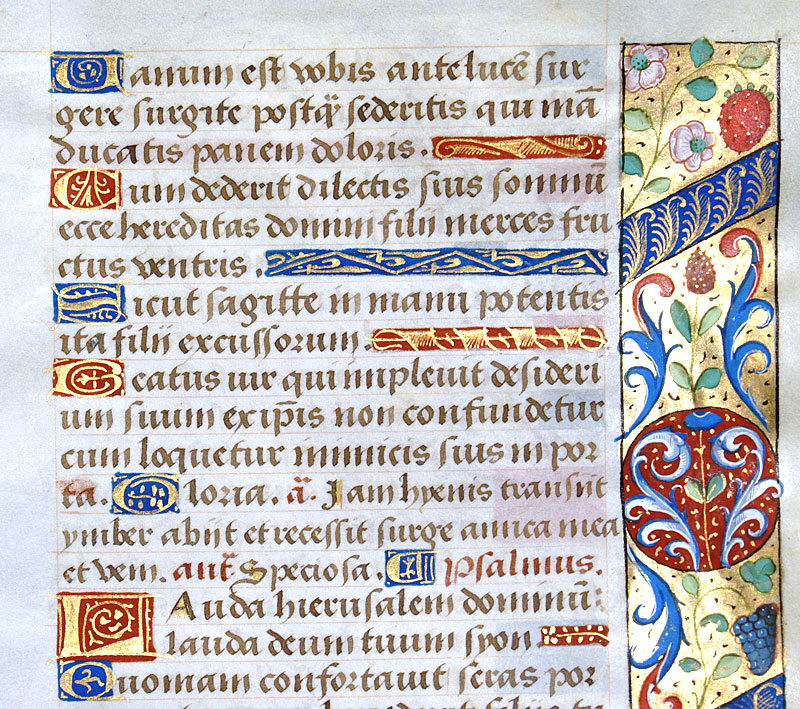 Vanum est vobis ante lucē sur
gere surgite postq̄ sederitis qui mā
ducatis panem doloris.
Cum dederit dilectis suis somnū
ecce hereditas domini filii merces fru
ctus ventris.
Sicut sagitte in manu potentis
ita filii excussorum.
Beatus vir qui implevit desideri
um suum ex ip̄is non confundetur
cum loquetur inimicis suis in por
ta. Gloria. a. Jam hyems transiit
ymber abiit et recessit surge amica mea
et veni. ant̄ Speciosa. Psalmus.
LAuda hierusalem dominū:
lauda deum tuum syon
Quoniam confortavit seras por